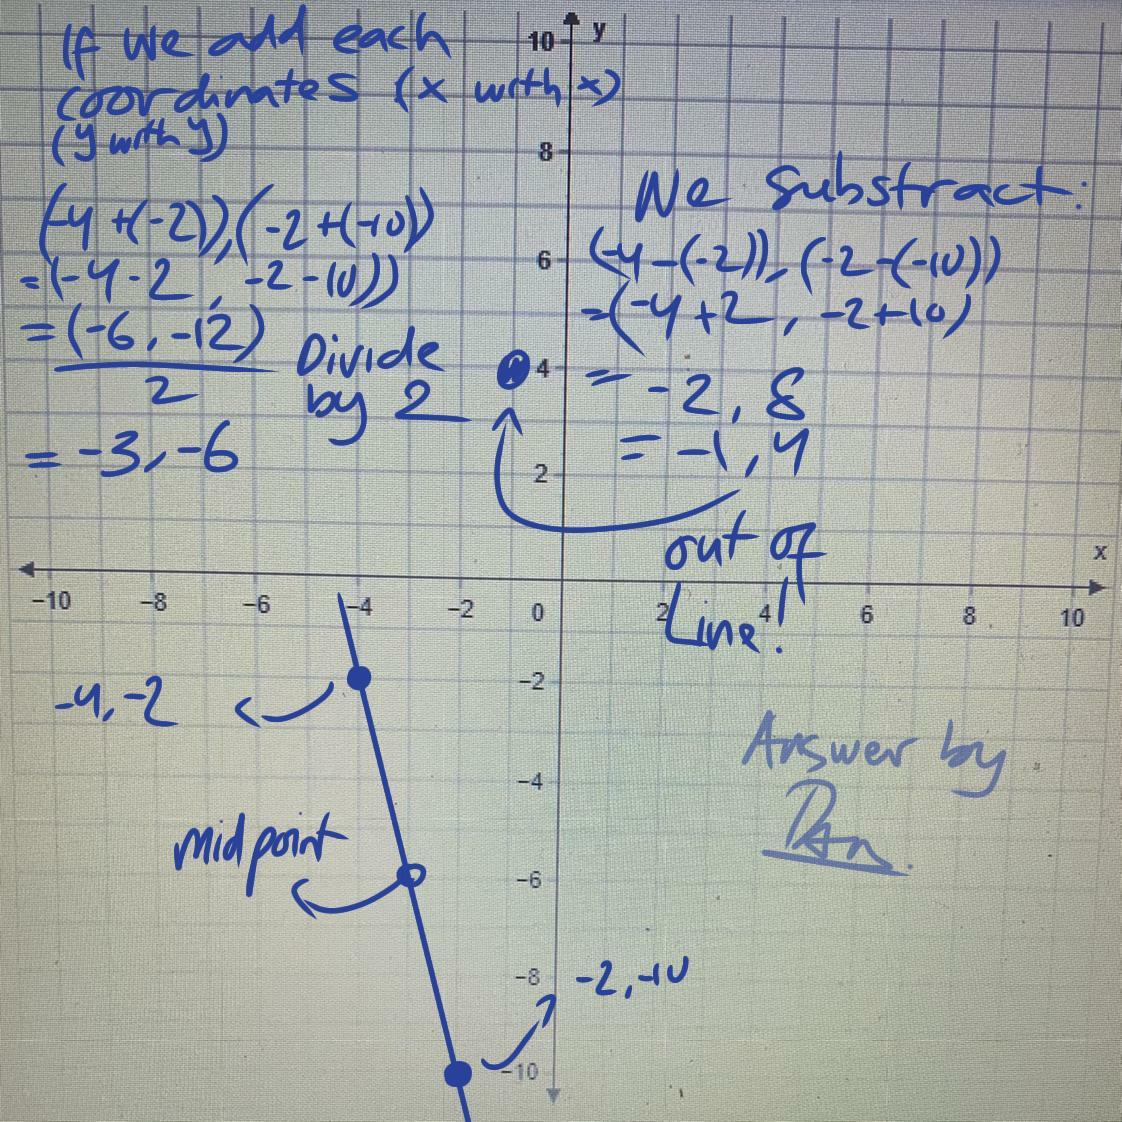 If we add each
coordinates (x with x)
(y with y)
(-4 +(-2)),(-2 +(-10))
= (-4 - 2 , -2 - 10))
= (-6 , -12)
2
Divide
by 2
= -3, -6
We Substract:
(-4 -(-2)), (-2 -(-10))
=(-4 + 2 , -2 + 10)
= -2, 8
= -1, 4
out of
Line!
y
10
8
6
4
2
x
-10 -8 -6 -4 -2 0 2 4 6 8 10
-2
-4
-6
-8
-10
-4, -2
midpoint
-2, -10
Answer by
Dan.